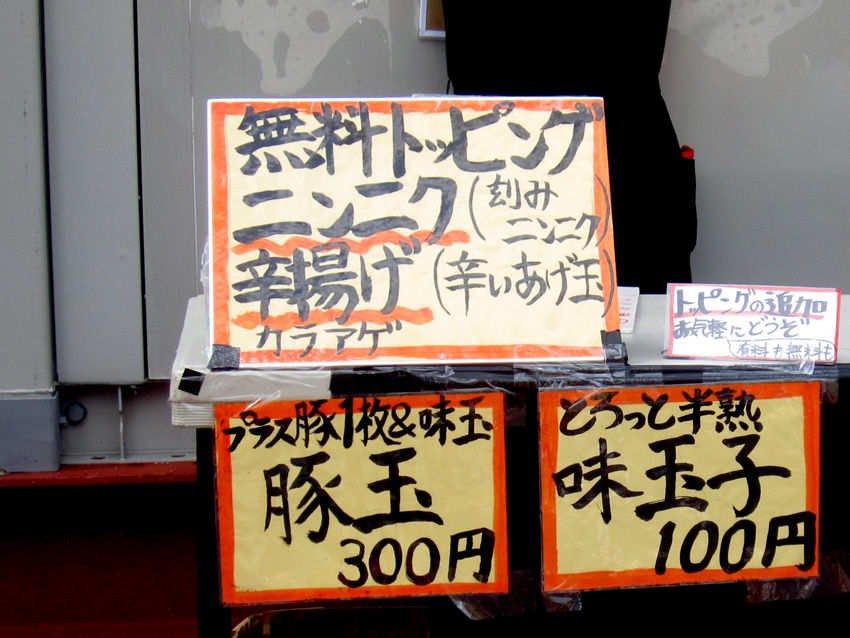 無料トッピング
ニンニク(刻みニンニク)
辛揚げ(辛いあげ玉)
カラアゲ
トッピングの追加
お気軽にどうぞ
(有料も無料も)
プラス豚1枚&味玉
豚玉
300円
とろっと半熟
味玉子
100円